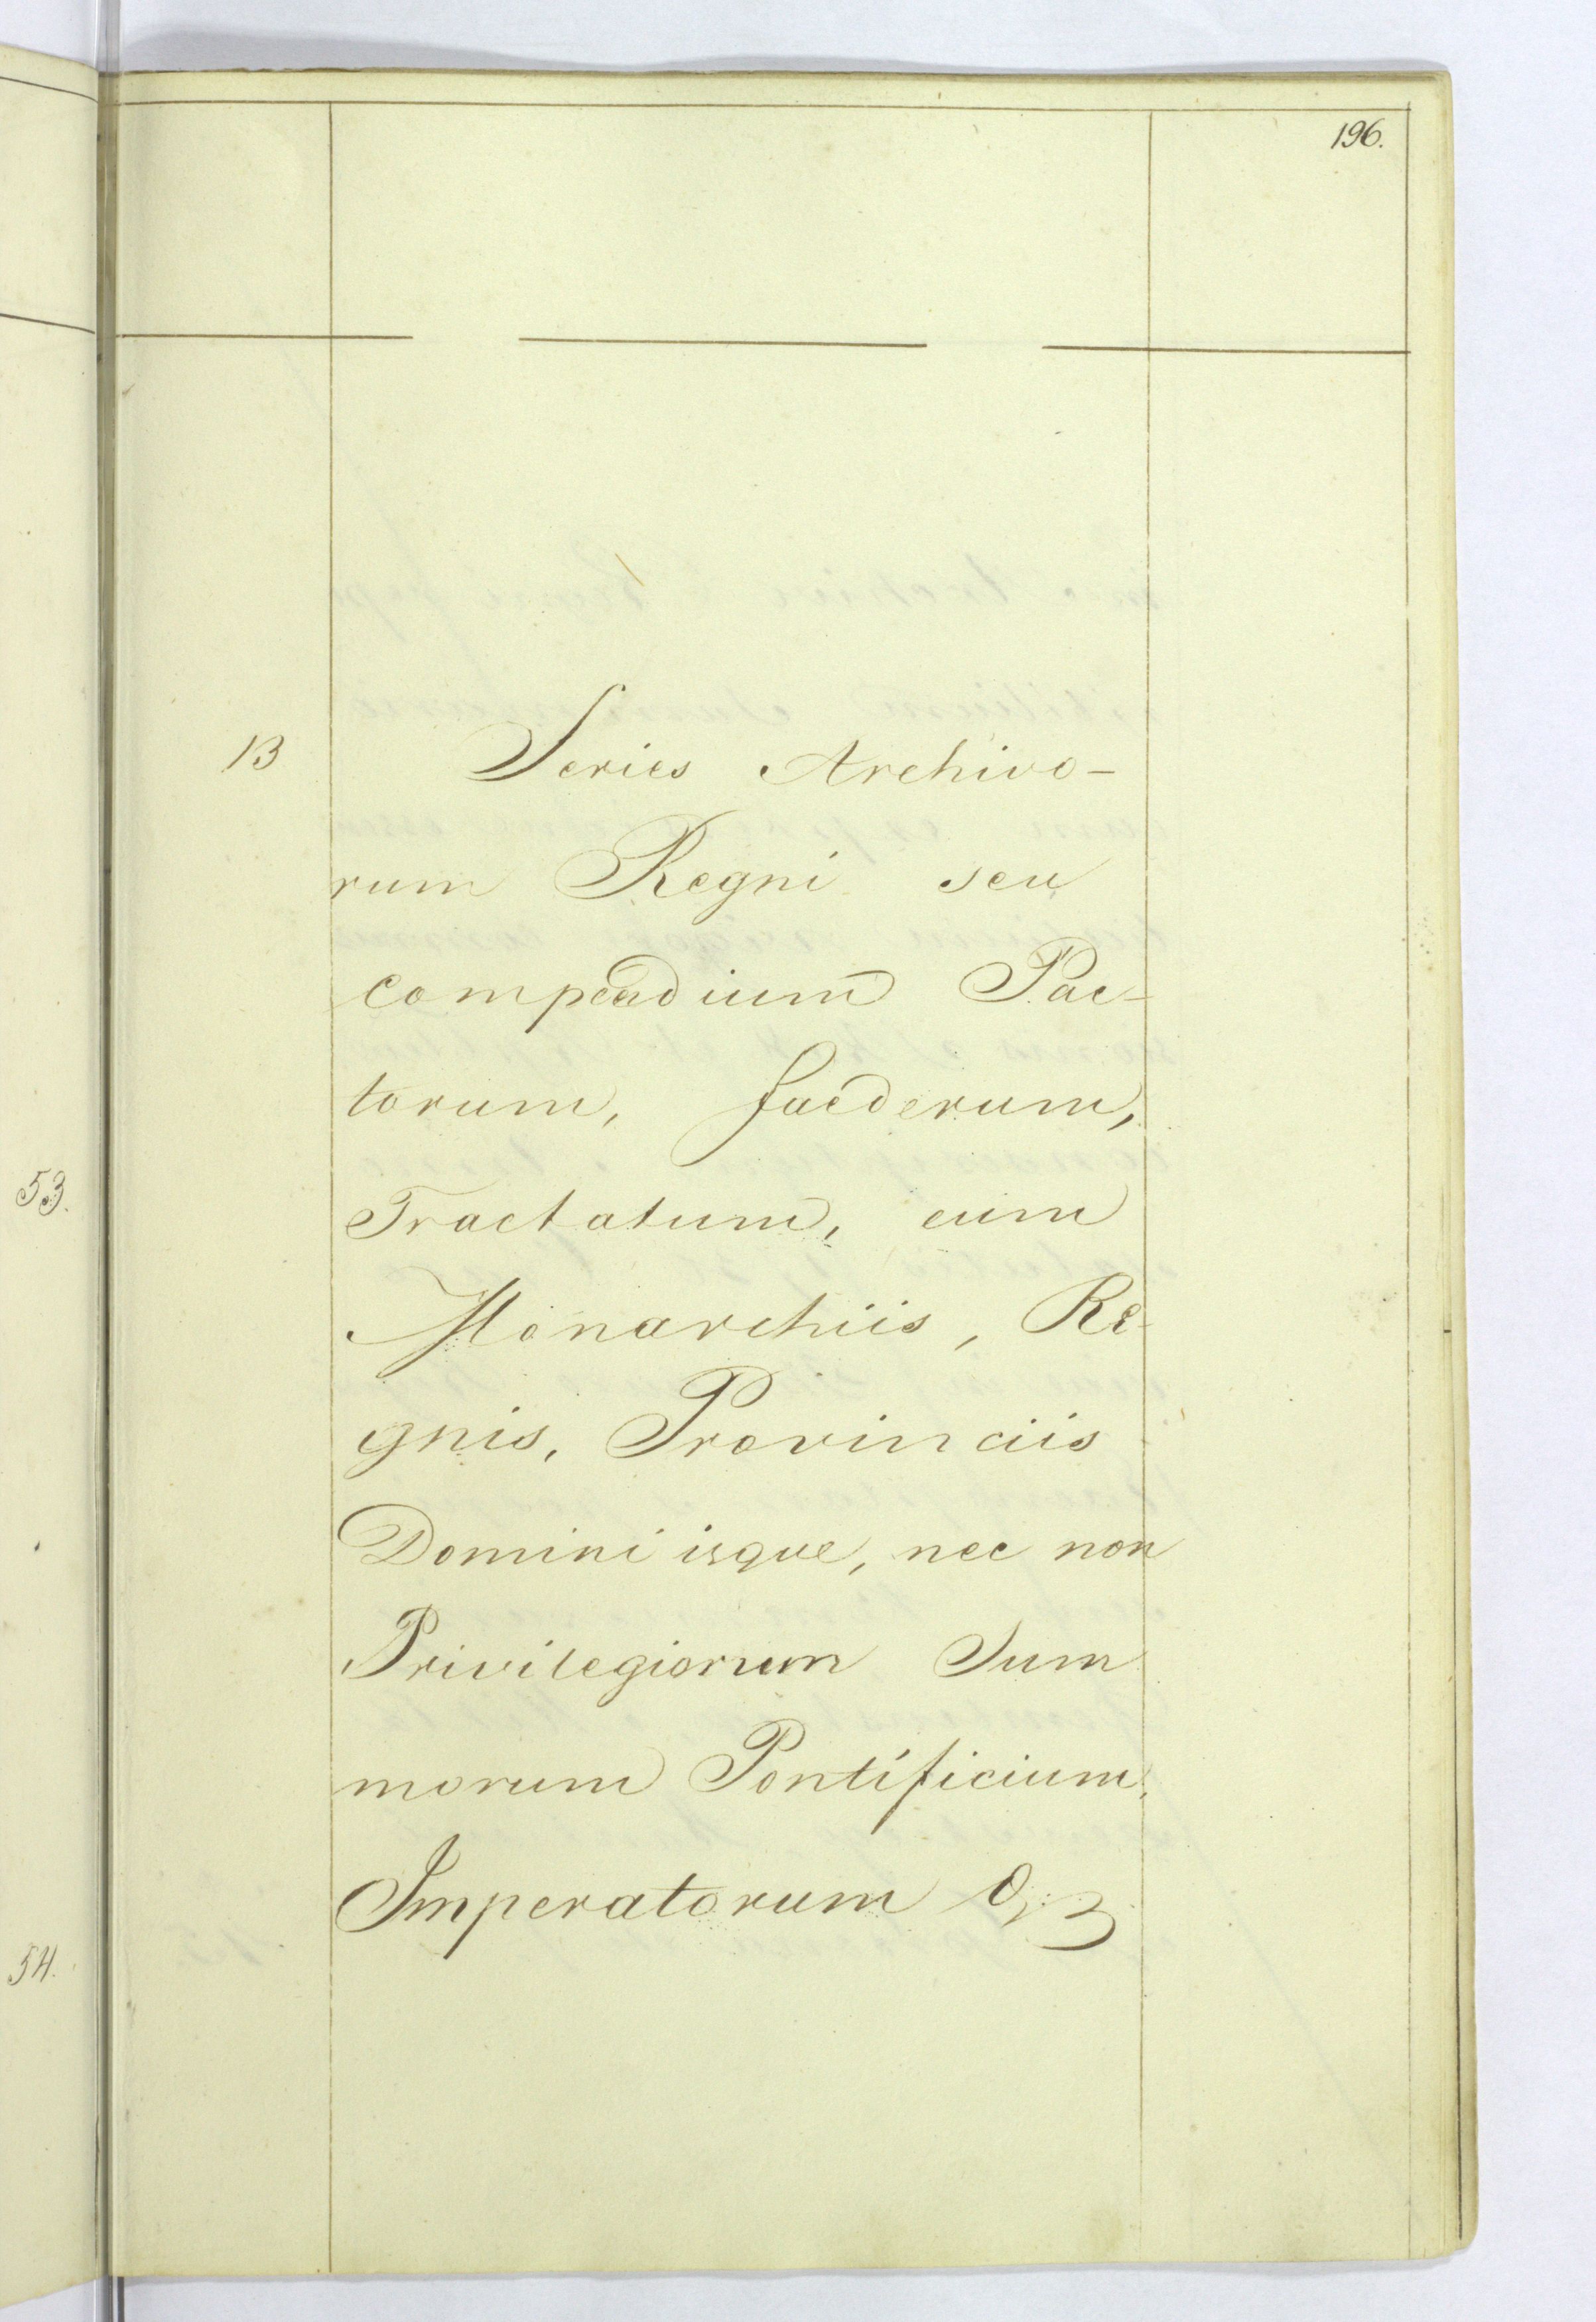 196.
13
Series Archivo-
rum Regni seu
compendium Pac-
torum, faederum,
Tractatum, cum
Monarchiis, Re-
gnis, Provinciis
Dominiisque, nec non
Privilegiorum Sum
morum Pontificium,
Imperatorum
53.
54.